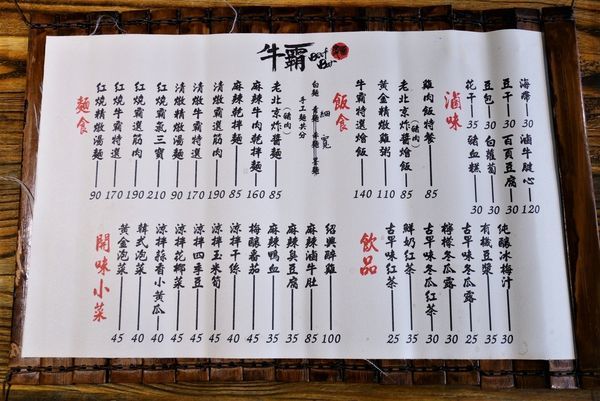 牛霸 Beef Bar
麵食
紅燒精燉湯麵 90
紅燒牛霸特選 170
紅燒霸選筋肉 190
紅燒霸氣三寶 210
清燉精燉湯麵 90
清燉牛霸特選 170
清燉霸選筋肉 190
麻辣乾拌麵 85
麻辣牛肉乾拌麵 160
老北京炸醬麵(豬肉) 85
手工麵共分
白麵
細 寬
飯食
牛霸特選燴飯 140
黃金精燉雞粥 110
老北京炸醬燴飯(豬肉) 85
雞肉飯特餐 85
滷味
花干 35
豬血糕 30
豆包 30
白蘿蔔 30
豆干 30
百頁豆腐 30
海帶 30
滷牛腱心 120
開味小菜
黃金泡菜 45
韓式泡菜 45
涼拌蒜香小黃瓜 40
涼拌花椰菜 45
涼拌四季豆 45
涼拌玉米筍 45
涼拌干絲 40
梅釀番茄 45
麻辣鴨血 35
麻辣臭豆腐 35
麻辣滷牛肚 85
紹興醉雞 100
飲品
古早味紅茶 25
鮮奶紅茶 35
古早味冬瓜紅茶 30
檸檬冬瓜露 30
古早味冬瓜露 25
有機豆漿 35
純釀冰梅汁 30